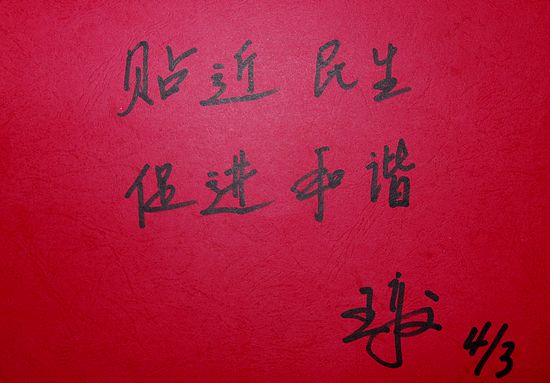 贴近 民生
促进 和谐
4/3